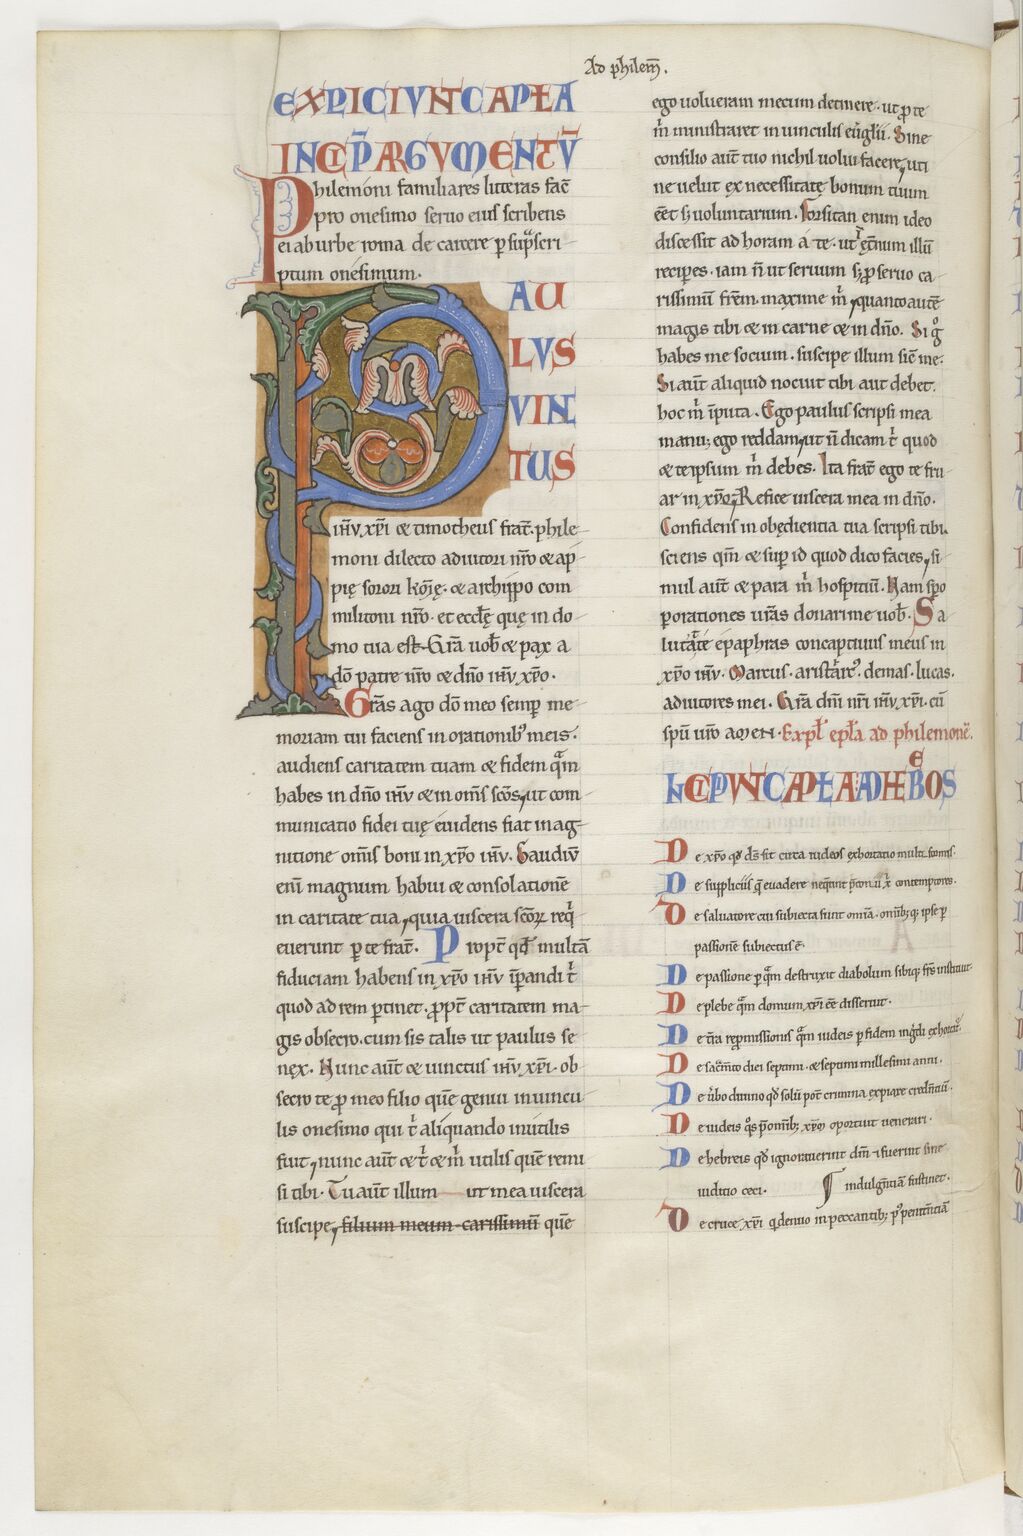 Ad philem̄.
EXPLICIVNT CAPŁA
INCIP̄ ARGVMENTV̄
Philemoni familiares litteras fac̄
pro onesimo seruo eius scribens
ei ab urbe roma de carcere p sup̄scri-
ptum onesimum.
PAU
LVS
VINC
TUS
ih̄v xp̄i & timotheus frat̄. phile-
moni dilecto adiutori nr̄o & ap-
pię sorori & archippo com
militoni nr̄o. et eccłę quę in do-
mo tua est. Gr̄a uob̄ & pax a
dō patre nr̄o & dn̄o ih̄v xp̄o.
Gr̄as ago dō meo semp̄ me-
moriam tui faciens in orationib; meis.
audiens caritatem tuam & fidem qᵃm
habes in dn̄o ih̄v & in om̄s sc̄os, ut com-
municatio fidei tuę euidens fiat in ag-
nitione om̄is boni in xp̄o ih̄v. Gaudiv̄
eni̅ magnum habui & consolationē
in caritate tua, quia uiscera sc̄oꝝ req̇-
euerunt p te frat̄. Propt̄ qd̄ multā
fiduciam habens in xp̄o ih̄v īpandi t̄
quod ad rem ptinet. ꝓpt̄ caritatem ma-
gis obsecro. cum sis talis ut paulus se-
nęx. Nunc aut̄ & uinctus ih̄v xp̄i. ob-
secro te ꝓ meo filio quē genui in uincu-
lis onesimo qui t̄ aliquando inutilis
fuit, nunc aut̄ & t̄ & m̄ utilis quē remi-
si tibi. Tu aut̄ illum ut mea uiscera
suscipe, filium meum carissimū quē
ego uolueram mecum detinere. ut ꝓ te
m̄ ministraret in uinculis eu̅glii. Sine
consilio aut̄ tuo nichil uolui facere, uti
ne uelut ex necessitatę bonum tuum
eēt s; uoluntarium. Forsitan enim ideo
discessit ad horam á te. ut ęt̄num illū
recipes. iam n̄ ut seruum s; ꝓ seruo ca-
rissimū frēm. maxime m̄, quanto autē
magis tibi & in carne & in dn̄o. Si gͦ
habes me socium. suscipe illum sic̄ me.
Si aut̄ aliquid nocuit tibi aut debet.
hoc m̄ īputa. Ego paulus scripsi mea
manu; ego reddam, ut n̄ dicam t̄ quod
& te ipsum m̄ debes. Ita frat̄ ego te fru-
ar in xp̄o, Refice uiscera mea in dn̄o.
Confidens in obędientia tua scripsi tibi.
sciens qm̄ & sup̄ id quod dico facies, si-
mul aut̄ & para m̄ hospitiū. Nam spo
p orationes ur̄as donari me uob̄. Sa-
lutat te epaphras concaptiuus meus in
xp̄o ih̄v. Marcus. aristarcꝰ. demas. lucas.
adiutores mei. Gr̄a dn̄i nr̄i ih̄v xp̄i. cū
spū ur̄o AMEN. Expł epła ad philemonē.
INCIPIVNT CAPŁA AD HEBREOS
De xp̄o qd̄ ds̄ sit cuia iudeos exhortatio multiformis.
De suppliciis q̨ euadere neq̇unt contemptores.
De saluatore cui subiecta sunt om̄ia. omib; q; ipse p
passionē subiectus ē
De passione p qᵃm destruxit diabolum sibiq; fr̄s instituit.
De plebe qᵃm domum xp̄i eē disseruit.
De t̄ra repmissionis qᵃm iudeis p fidem ingdi exhortat̄.
De sacm̄to diei septimi. & septimi millesimi anni.
De u̅bo diuino qd̄ solū pot̄ crimina expiare credentiū.
De iudeis qͦs p̄ omib; xp̄m oportuit uenerari.
De hebreis qd̄ ignorauerint dm̄ fuerint siue
iuditio ceci. indulgn̄tiā sustinet.
De cruce xp̄i q̨ denuo in peccantib; pꝰ penitn̄tiā